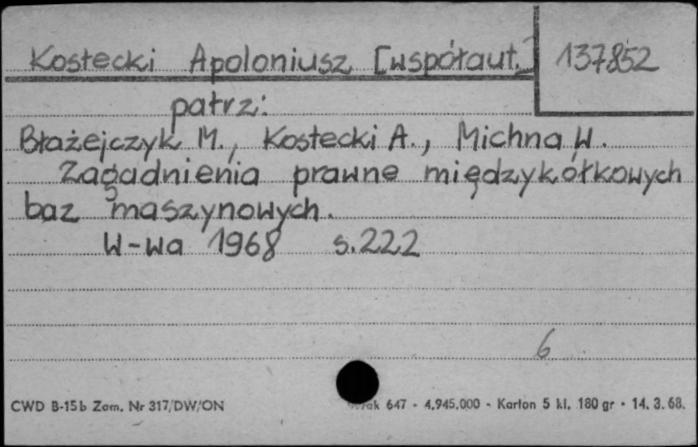 Kostecki Apoloniusz [współaut.] 137852
patrz:
Błażejczyk M., Kostecki A., Michna W.
Zagadnienia prawne międzykółkowych
baz maszynowych.
W-wa 1968 s.222
6
CWD B-15b Zam. Nr 317/DW/ON 647 - 4.945.000 - Karton 5 kl. 180 gr - 14. 3. 68.